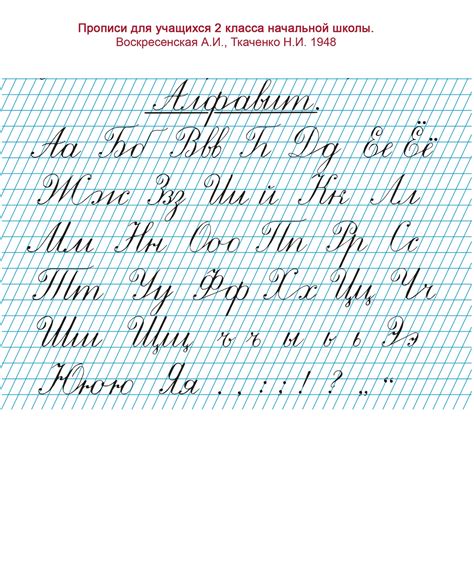 Прописи для учащихся 2 класса начальной школы.
Воскресенская А.И., Ткаченко Н.И. 1948
Алфавит.
Аа Бб Ввв Г Дд Ее Ёё
Жж Ззз Ии й Кк Лл
Мм Нн Ооо Пп Рр Сс
Тт Уу Фф Хх Цц Чч
Шш Щщ ъ ъ ы ь ь Ээ
Ююю Яя . , : ; ! ? „ “